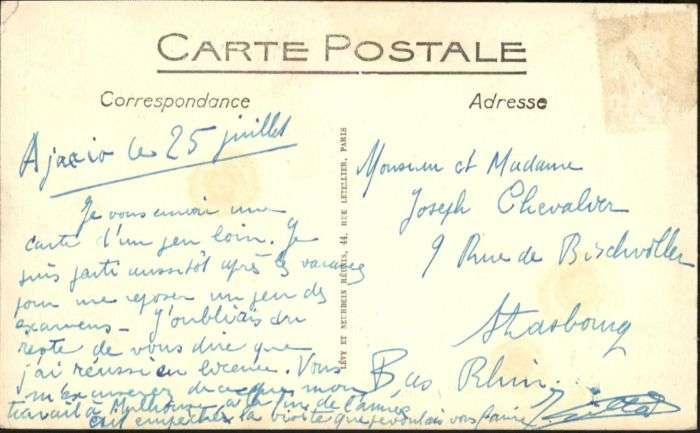 CARTE POSTALE
Correspondance
Adresse
Ajaccio le 25 juillet
Je vous envoie une
carte d'un peu loin. Je
suis parti aussitôt après les vacances
pour me reposer un peu des
examens - J'oubliais du
reste de vous dire que
j'ai réussi en licence. Vous
m'excuserez de ce que mon
travail à Mulhouse à la fin de l'année
ait empêcher la visite que je voulais vous faire
LÉVY ET NEURDEIN RÉUNIS, 44, RUE LETELLIER, PARIS
Monsieur et Madame
Joseph Chevalier
9 Rue de Bischwiller
Strasbourg
Bas Rhin.